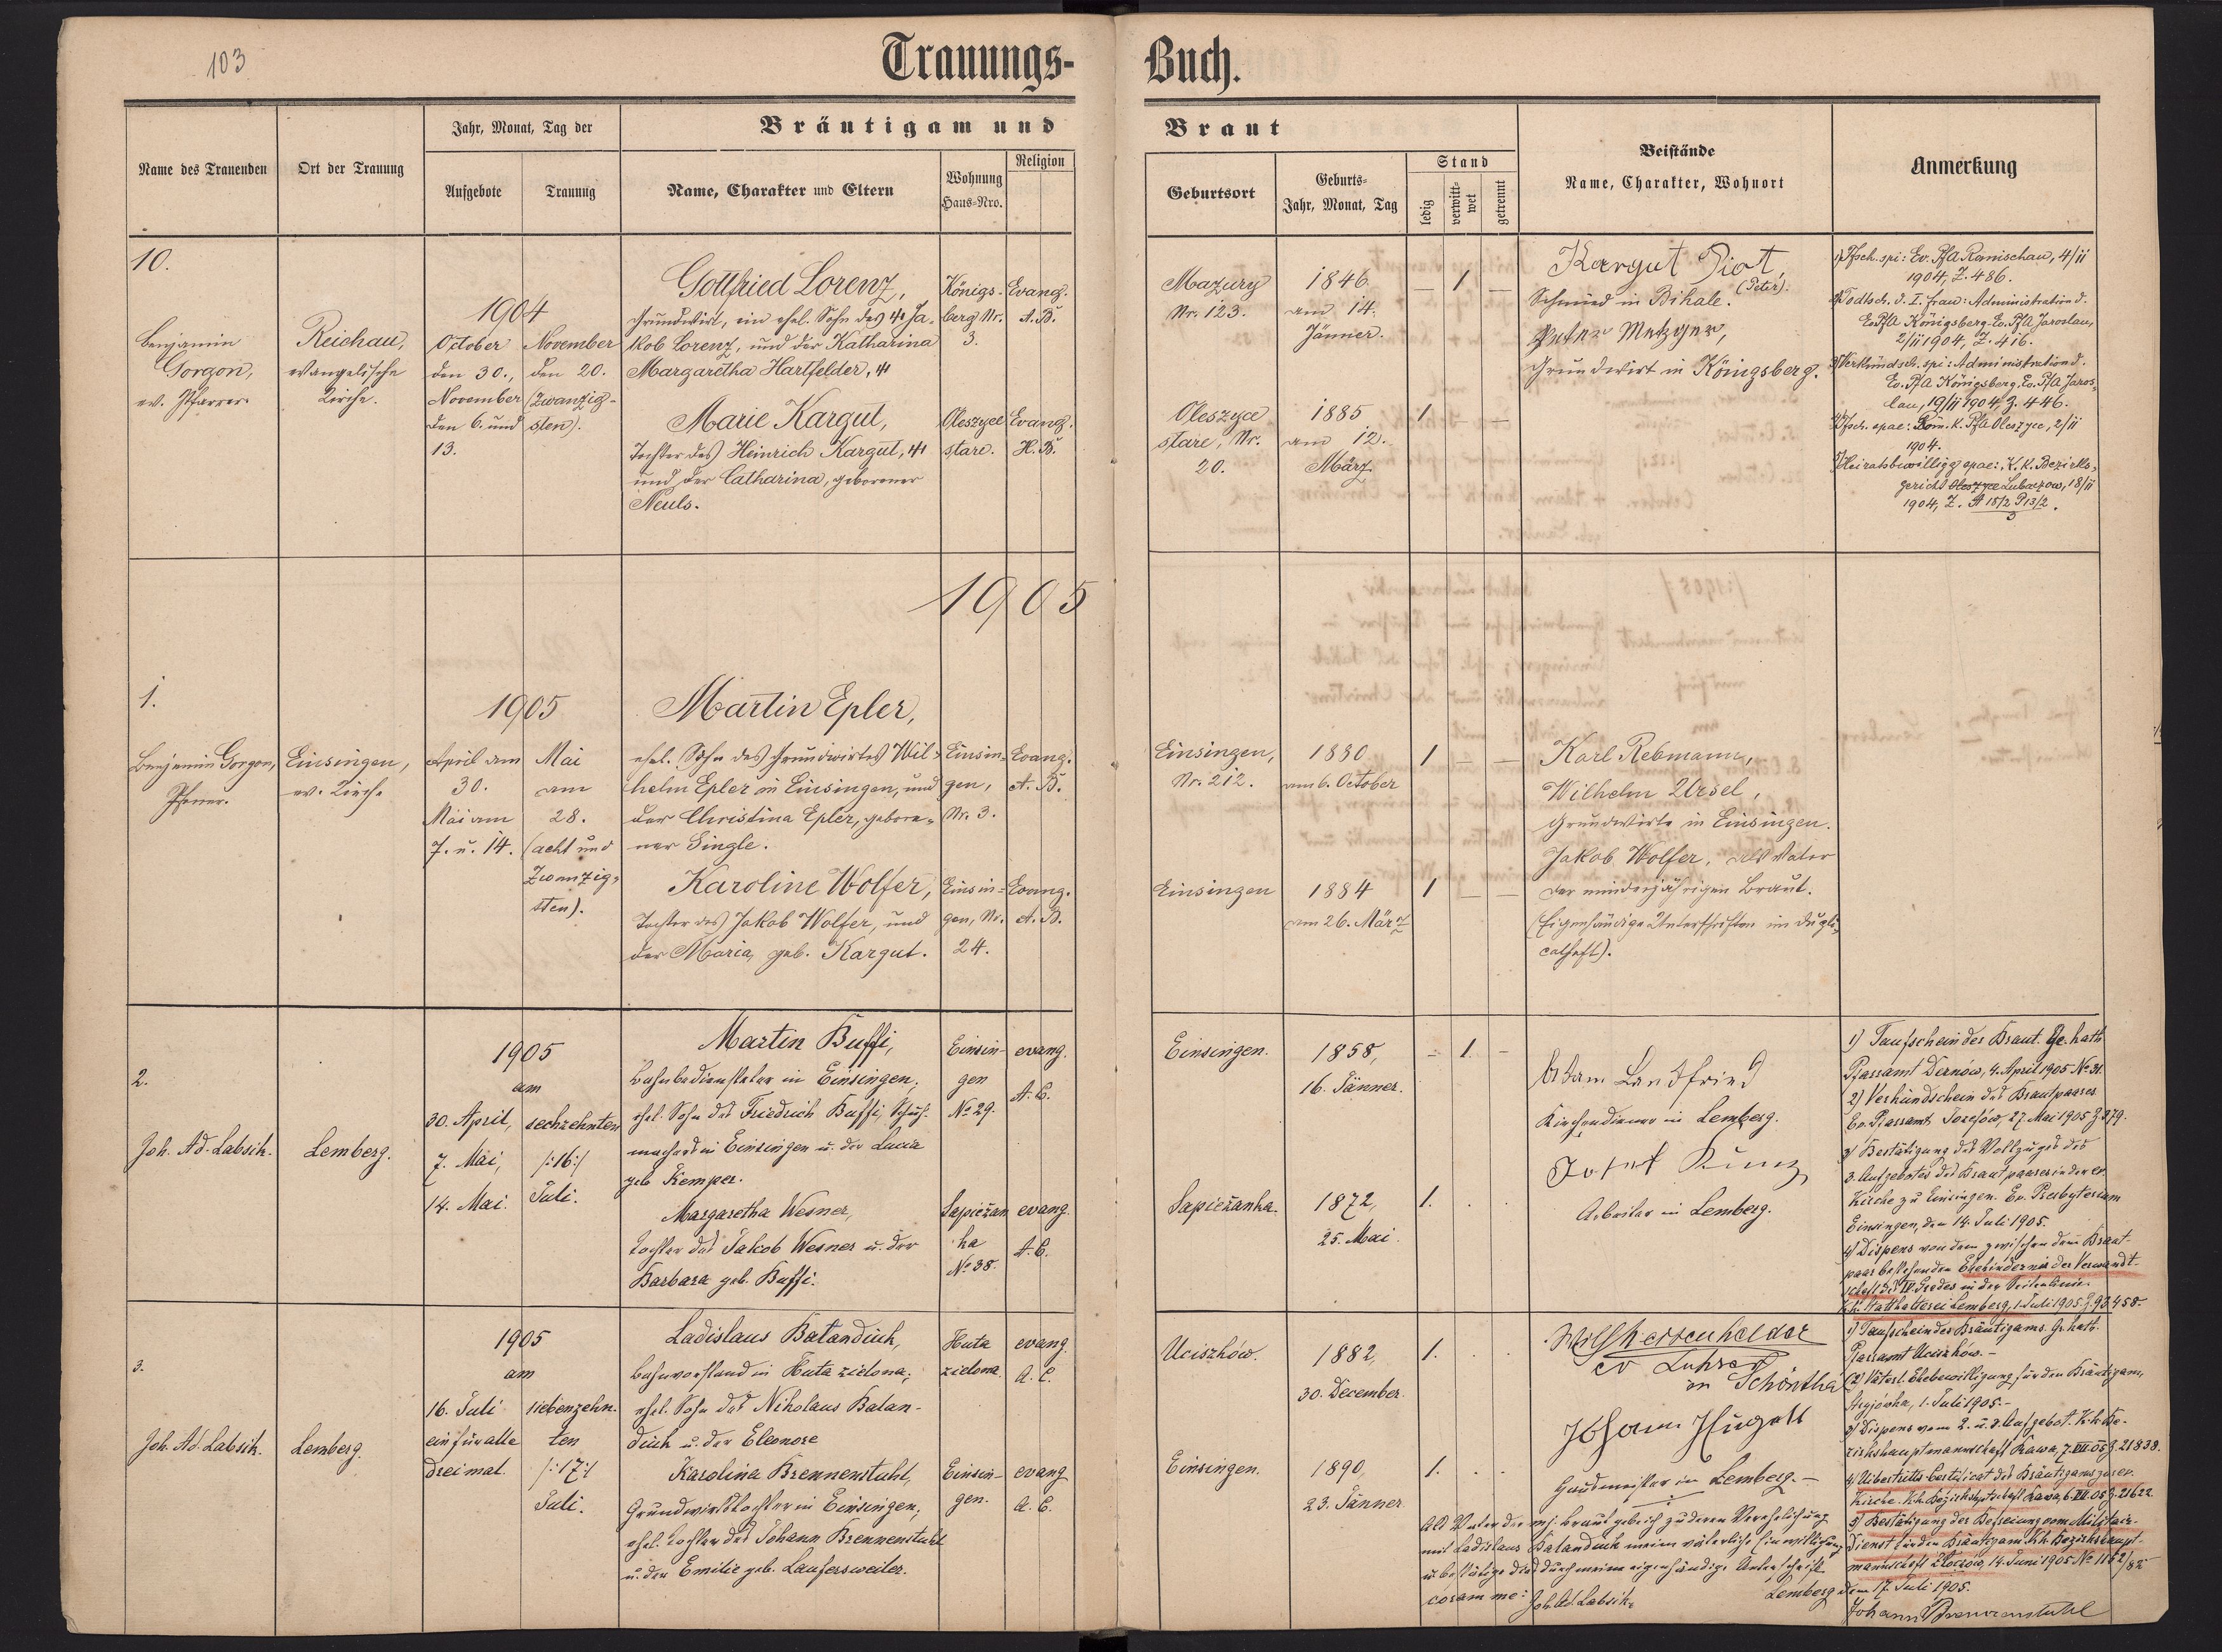 103
Trauungs-
Buch.
Name des Trauenden
Ort der Trauung
Jahr, Monat, Tag der
Aufgebote
Trauung
Bräutigam und
Name, Charakter und Eltern
Wohnung
Haus-Nro.
Religion
Braut
Geburtsort
Geburts-
Jahr, Monat, Tag
Stand
ledig
verwitt-
wet
getrennt
Beistände
Name, Charakter, Wohnort
Anmerkung
10.
Benjamin
Gorgon,
ev. Pfarrer.
Reichau,
evangelische
Kirche.
1904
October
den 30.,
November
den 6. und
13.
November
den 20.
(zwanzig-
sten).
Gottfried Lorenz,
Grundwirt, ein ehel. Sohn des Ja-
kob Lorenz, und der Katharina
Margaretha Hartfelder,
Königs-
berg Nr.
3.
Evang.
A. B.
Marie Kargut,
Tochter des Heinrich Kargut,
und der Catharina, geborener
Neuls.
Oleszyce
stare.
Evang.
H. B.
Mazury
Nr. 123.
1846
am 14.
Jänner.
– 1 –
Oleszyce
stare, Nr.
20.
1885
am 12.
März.
1 – –
Kargut Piot,
(Peter).
Schmied in Bihale.
Peter Metzger,
Grundwirt in Königsberg.
1) Tfsch. spi: Ev. PfA Ranischau, 4/11
1904, Z. 486.
2) Todtsch. d. I. Frau: Administration d.
Ev. PfA Königsberg. Ev. PfA Jaroslau,
2/11 1904, Z. 416.
3) Verkündsch. spi: Administration d.
Ev. PfA Königsberg. Ev. PfA Jaros-
lau, 19/11 1904, Z. 446.
4) Tfsch. spae: Röm. k. PfA Oleszyce, 2/11
1904.
5) Heiratsbewilligg spae: K. K. Bezirks-
gericht Oleszyce Lubaczow, 18/11
1904, Z. A 15/2 P 13/2.
3
1905
1.
Benjamin Gorgon,
Pfarrer.
Einsingen,
ev. Kirche
1905
April am
30.
Mai am
7. u. 14.
Mai
am
28.
(acht und
zwanzig-
sten).
Martin Epler,
ehel. Sohn des Grundwirtes Wil-
helm Epler in Einsingen, und
der Christina Epler, gebore-
ner Single.
Einsin-
gen,
Nr. 3.
Evang.
A. B.
Karoline Wolfer,
Tochter des Jakob Wolfer, und
der Maria, geb. Kargut.
Einsin-
gen, Nr.
24.
Evang.
A. B.
Einsingen,
Nr. 212.
1880
am 6. October
1 – –
Einsingen
1884
am 26. März
1 – –
Karl Rebmann,
Wilhelm Ursel,
Grundwirte in Einsingen.
Jakob Wolfer, als Vater
der minderjährigen Braut.
(Eigenhändige Unterschriften im Dupli-
catheft).
2.
Joh. Ad. Labsik.
Lemberg.
1905
am
30. April,
7. Mai,
14. Mai.
sechzehnten
/:16:/
Juli.
Martin Buffi,
Bahnbediensteter in Einsingen,
ehel. Sohn des Friedrich Buffi, Schuh-
machers in Einsingen u. der Lucia
geb Kemper.
Einsin-
gen
No 29.
evang.
A. C.
Margaretha Wesner,
Tochter des Jakob Wesner u. der
Barbara geb. Buffi.
Sapieżan
ka
No 38.
evang.
A. C.
Einsingen.
1858,
16. Jänner.
– 1. –
Sapieżanka.
1872,
25. Mai.
1. . .
Adam Landfried
Kirchendiener in Lemberg.
Josef Kunz
Arbeiter in Lemberg.
1) Taufschein der Braut. Gr. kath
Pfarramt Dernów, 4. April 1905 No 31.
2) Verkündschein des Brautpaares
Ev. Pfarramt Josefów, 27. Mai 1905 Z. 379.
3) Bestätigung des Vollzuges des
3. Aufgebotes des Brautpaares in der ev.
Kirche zu Einsingen. Ev. Presbyterium
Einsingen, den 14. Juli 1905.
4) Dispens von dem zwischen dem Braut-
paar bestehenden Ehehindernis der Verwandt-
schaft des IV. Grades in der Seitenlinie.
K. k. Statthalterei Lemberg, 1. Juli 1905 Z. 93.458.
3.
Joh. Ad. Labsik.
Lemberg.
1905
am
16. Juli
ein für alle
dreimal.
siebenzehn-
ten
/:17:/
Juli.
Ladislaus Batandiuk,
Bahnvorstand in Huta zielona,
ehel. Sohn des Nikolaus Batan-
diuk u. der Eleonore
Huta
zielona.
evang.
A. C.
Karolina Brennenstuhl,
Grundwirtstochter in Einsingen,
ehel. Tochter des Johann Brennenstuhl
u. der Emilie geb. Laufersweiler.
Einsin-
gen.
evang
A. C.
Uciszków.
1882,
30. December.
1. . .
Einsingen.
1890,
23. Jänner.
1. . .
ev Lehrer
in Schönthal
Johann Hügell
in Lemberg. –
Als Vater der mj. Braut gebe ich zu deren Verehelichung
mit Ladislaus Batandiuk meine väterliche Einwilligung
u. bestätige dies durch meine eigenhändige Unterschrift
Lemberg den 17. Juli 1905.
coram me: Joh. Ad. Labsik.
Johann Brennenstuhl
1) Taufschein des Bräutigams. Gr. kath.
Pfarramt Uciszków. –
2) Väterl. Ehebewilligung für den Bräutigam,
1. Juli 1905. –
3) Dispens vom 2. u. 3. Aufgebot. K. k. Be-
zirkshauptmannschaft Rawa, 7. VII. 05 Z. 21838.
4) Uibertritts Certificat des Bräutigams zur ev.
Kirche. K. k. Bezirkshptschaft Rawa, 6. VII. 05 Z. 21622.
5) Bestätigung der Befreiung vom Militair-
dienst für den Bräutigam K. k. Bezirkshaupt-
mannschaft Złoczów, 14. Juni 1905 No 1162/82